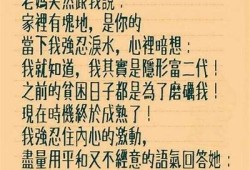 老媽突然跟我說：
家裡有塊地，是你的
當下我強忍淚水，心裡暗想：
我就知道，我其實是隱形富二代！
之前的貧困日子都是為了磨礪我！
現在時機終於成熟了！
我強忍住內心的激動，
盡量用平和又不經意的語氣回答她：